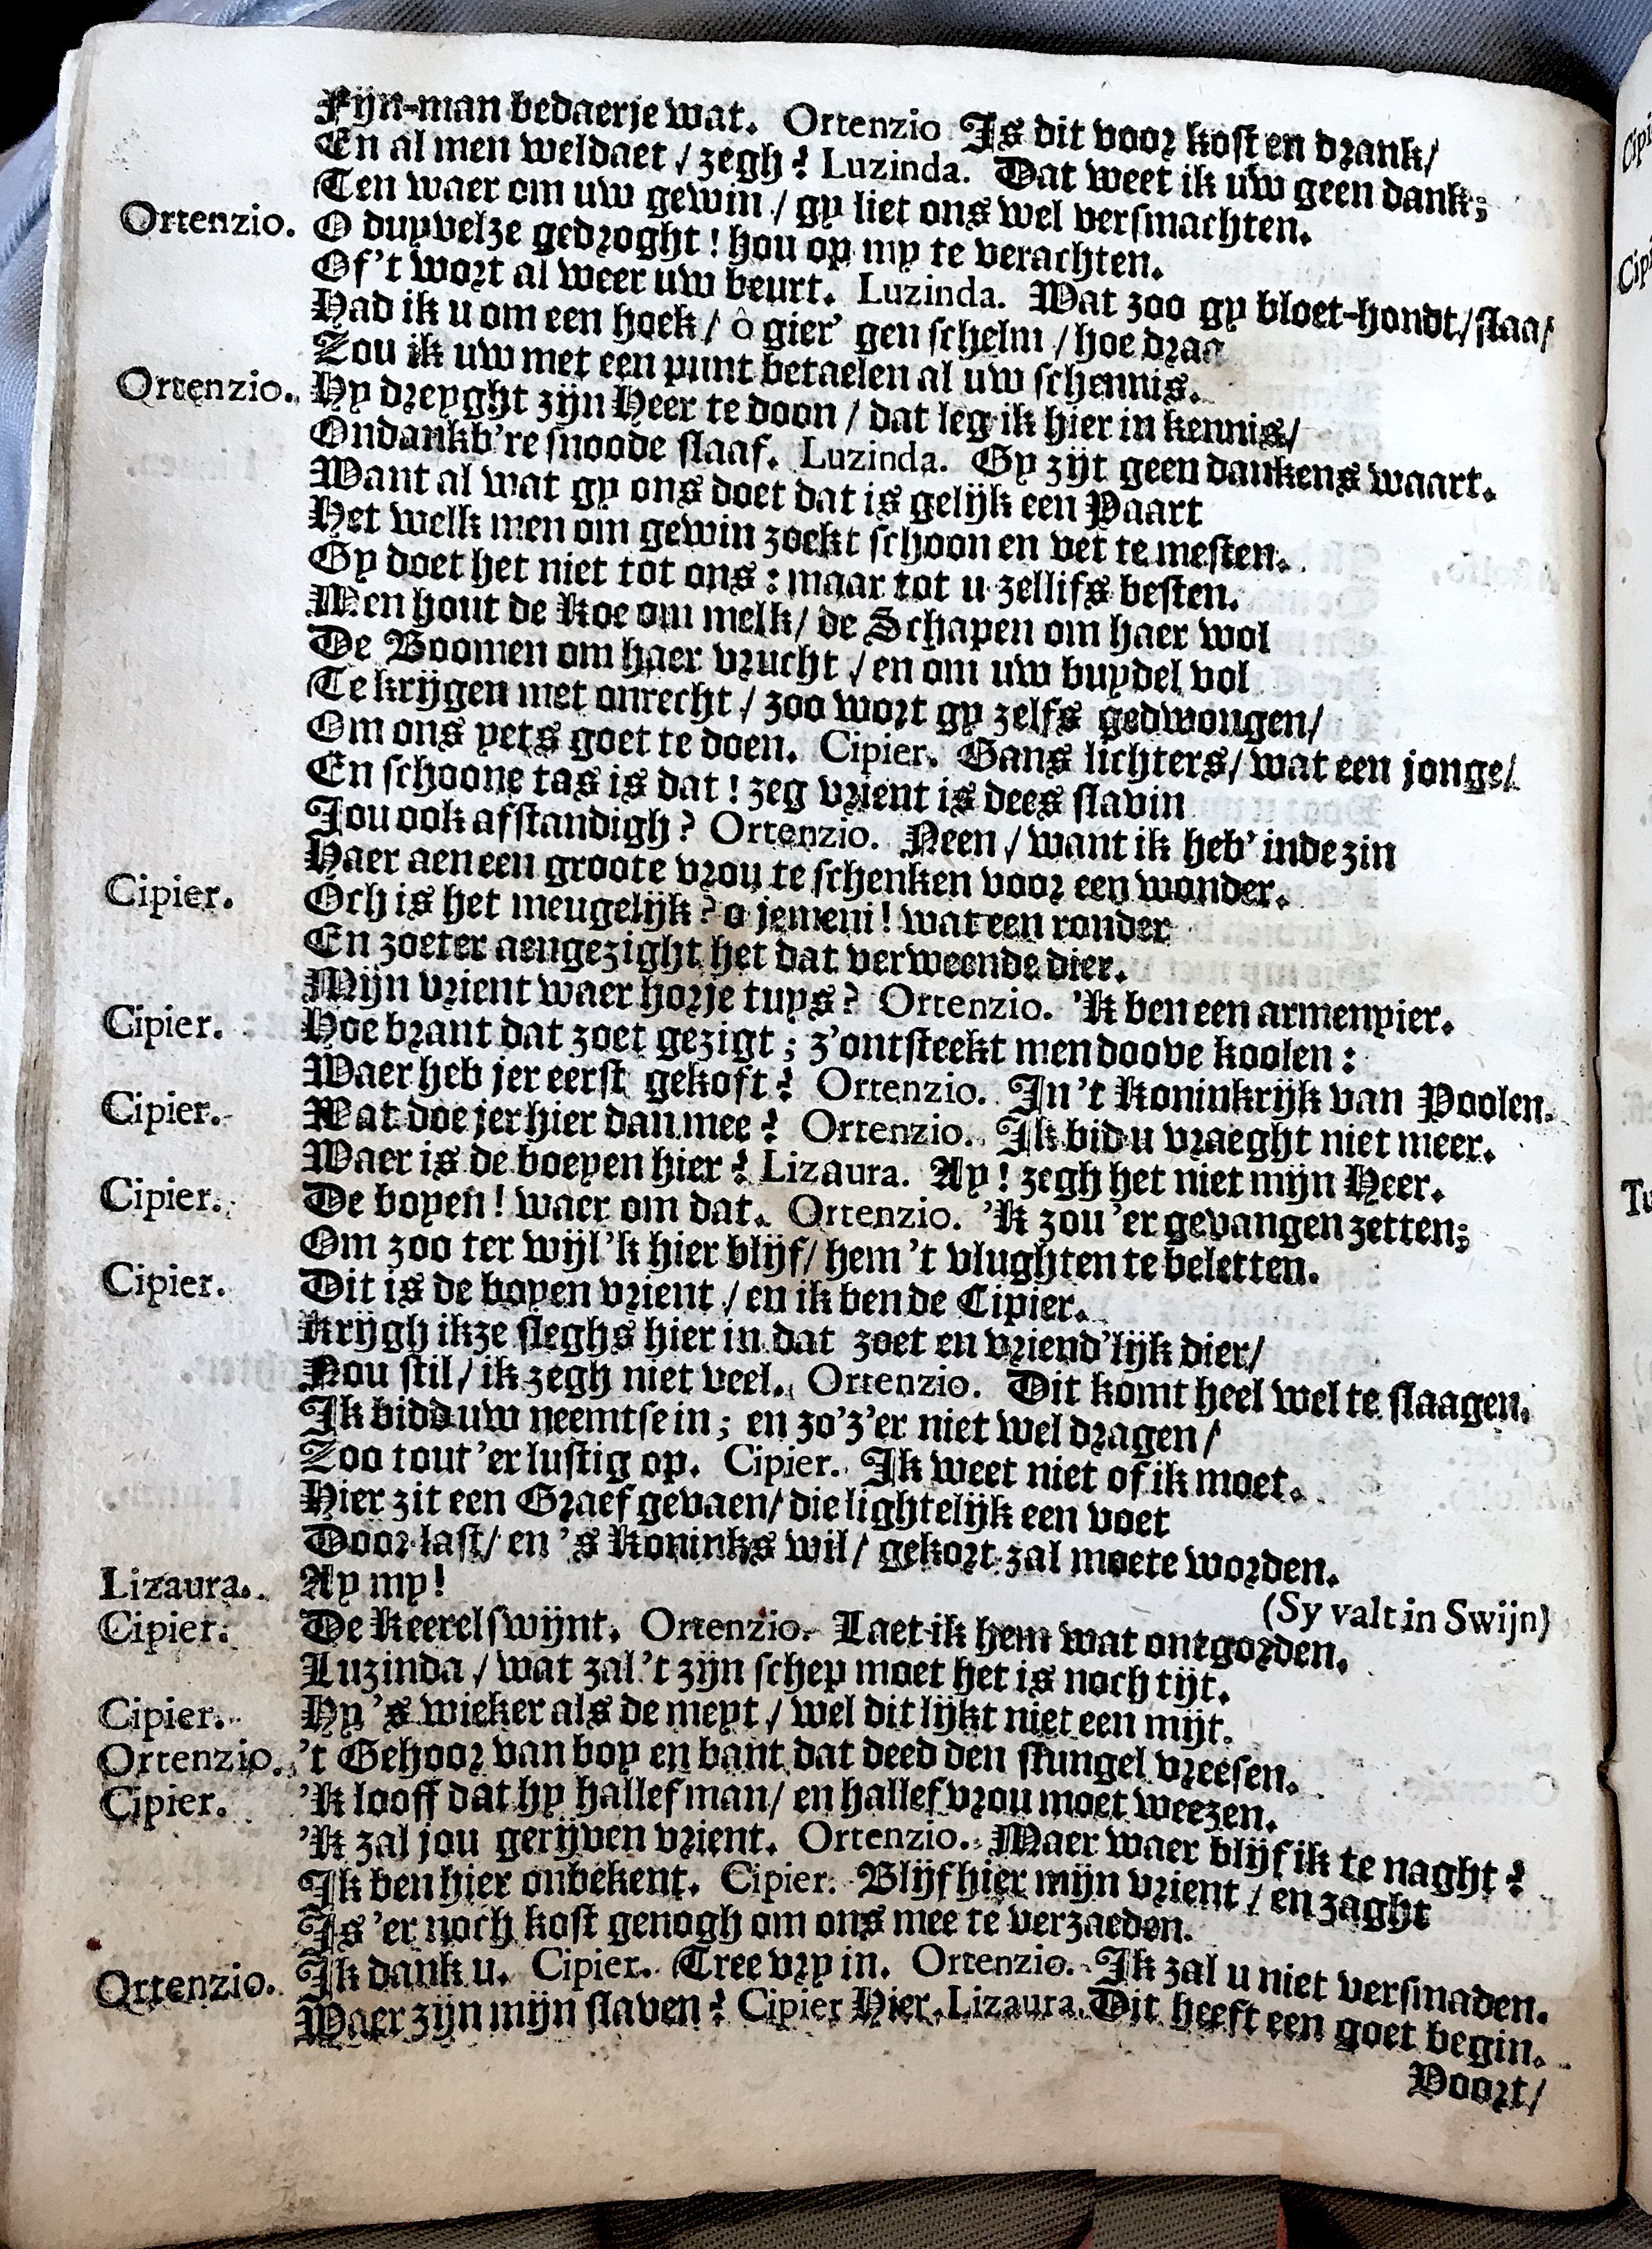 Fijn-man bedaerje wat. Ortenzio Is dit voor kost en drank/
En al men weldaet / zegh? Luzinda. Dat weet ik uw geen dank;
Ten waer om uw gewin / gy liet ons wel versmachten.
Ortenzio. O duyvelze gedroght! hou op my te verachten.
Of't wort al weer uw beurt. Luzinda. Wat zoo gy bloet-hondt/slaa/
Had ik u om een hoek / ô gier' gen schelm / hoe draa
Zou ik uw met een punt betaelen al uw schennis.
Ortenzio. Hy dreyght zijn Heer te doon / dat leg ik hier in kennis/
Ondankb're snoode slaaf. Luzinda. Gy zijt geen dankens waart.
Want al wat gy ons doet dat is gelijk een Paart
Het welk men om gewin zoekt schoon en vet te mesten.
Gy doet het niet tot ons: maar tot u zellifs besten.
Men hout de Koe om melk/ de Schapen om haer wol
De Boomen om haer vrucht / en om uw buydel vol
Te krijgen met onrecht / zoo wort gy zelfs gedwongen/
Om ons yets goet te doen. Cipier. Gans lichters/ wat een jonge/
En schoone tas is dat! zeg vrient is dees slavin
Jou ook afstandigh? Ortenzio. Neen / want ik heb' inde zin
Haer aen een groote vrou te schenken voor een wonder.
Cipier. Och is het meugelijk? o jemeni! wat een ronder
En zoeter aengezight het dat verweende dier.
Mijn vrient waer horje tuys? Ortenzio. 'K ben een armen pier.
Cipier. Hoe brant dat zoet gezigt; z'ontsteekt men doove koolen:
Waer heb jer eerst gekoft? Ortenzio. In 't Koninkrijk van Poolen.
Cipier. Wat doe jer hier dan mee? Ortenzio. Ik bid u vraeght niet meer.
Waer is de boeyen hier? Lizaura. Ay! zegh het niet mijn Heer.
Cipier. De boyen! waer om dat. Ortenzio. 'K zou 'er gevangen zetten;
Om zoo ter wijl 'k hier blijf/ hem 't vlughten te beletten.
Cipier. Dit is de boyen vrient / en ik ben de Cipier.
Krijgh ikze sleghs hier in dat zoet en vriend'lijk dier/
Nou stil / ik zegh niet veel. Ortenzio. Dit komt heel wel te slaagen.
Ik bidd uw neemtse in; en zo'z'er niet wel dragen /
Zoo tout 'er lustig op. Cipier. Ik weet niet of ik moet.
Hier zit een Graef gevaen/ die lightelijk een voet
Door last/ en 's Koninks wil / gekort zal moete worden.
Lizaura. Ay my!
(Sy valt in Swijn)
Cipier. De Keerel swijnt. Ortenzio. Laet ik hem wat ontgorden.
Luzinda / wat zal 't zijn schep moet het is noch tijt.
Cipier. Hy 's wieker als de meyt / wel dit lijkt niet een mijt.
Ortenzio. 't Gehoor van boy en bant dat deed den stungel vreesen.
Cipier. 'K looff dat hy hallef man/ en hallef vrou moet weezen.
'K zal jou gerijven vrient. Ortenzio. Maer waer blijf ik te naght?
Ik ben hier onbekent. Cipier. Blijf hier mijn vrient / en zaght
Is 'er noch kost genogh om ons mee te verzaeden.
Ortenzio. Ik dank u. Cipier. Tree vry in. Ortenzio. Ik zal u niet versmaden.
Waer zijn mijn slaven? Cipier Hier. Lizaura. Dit heeft een goet begin.
Voort/